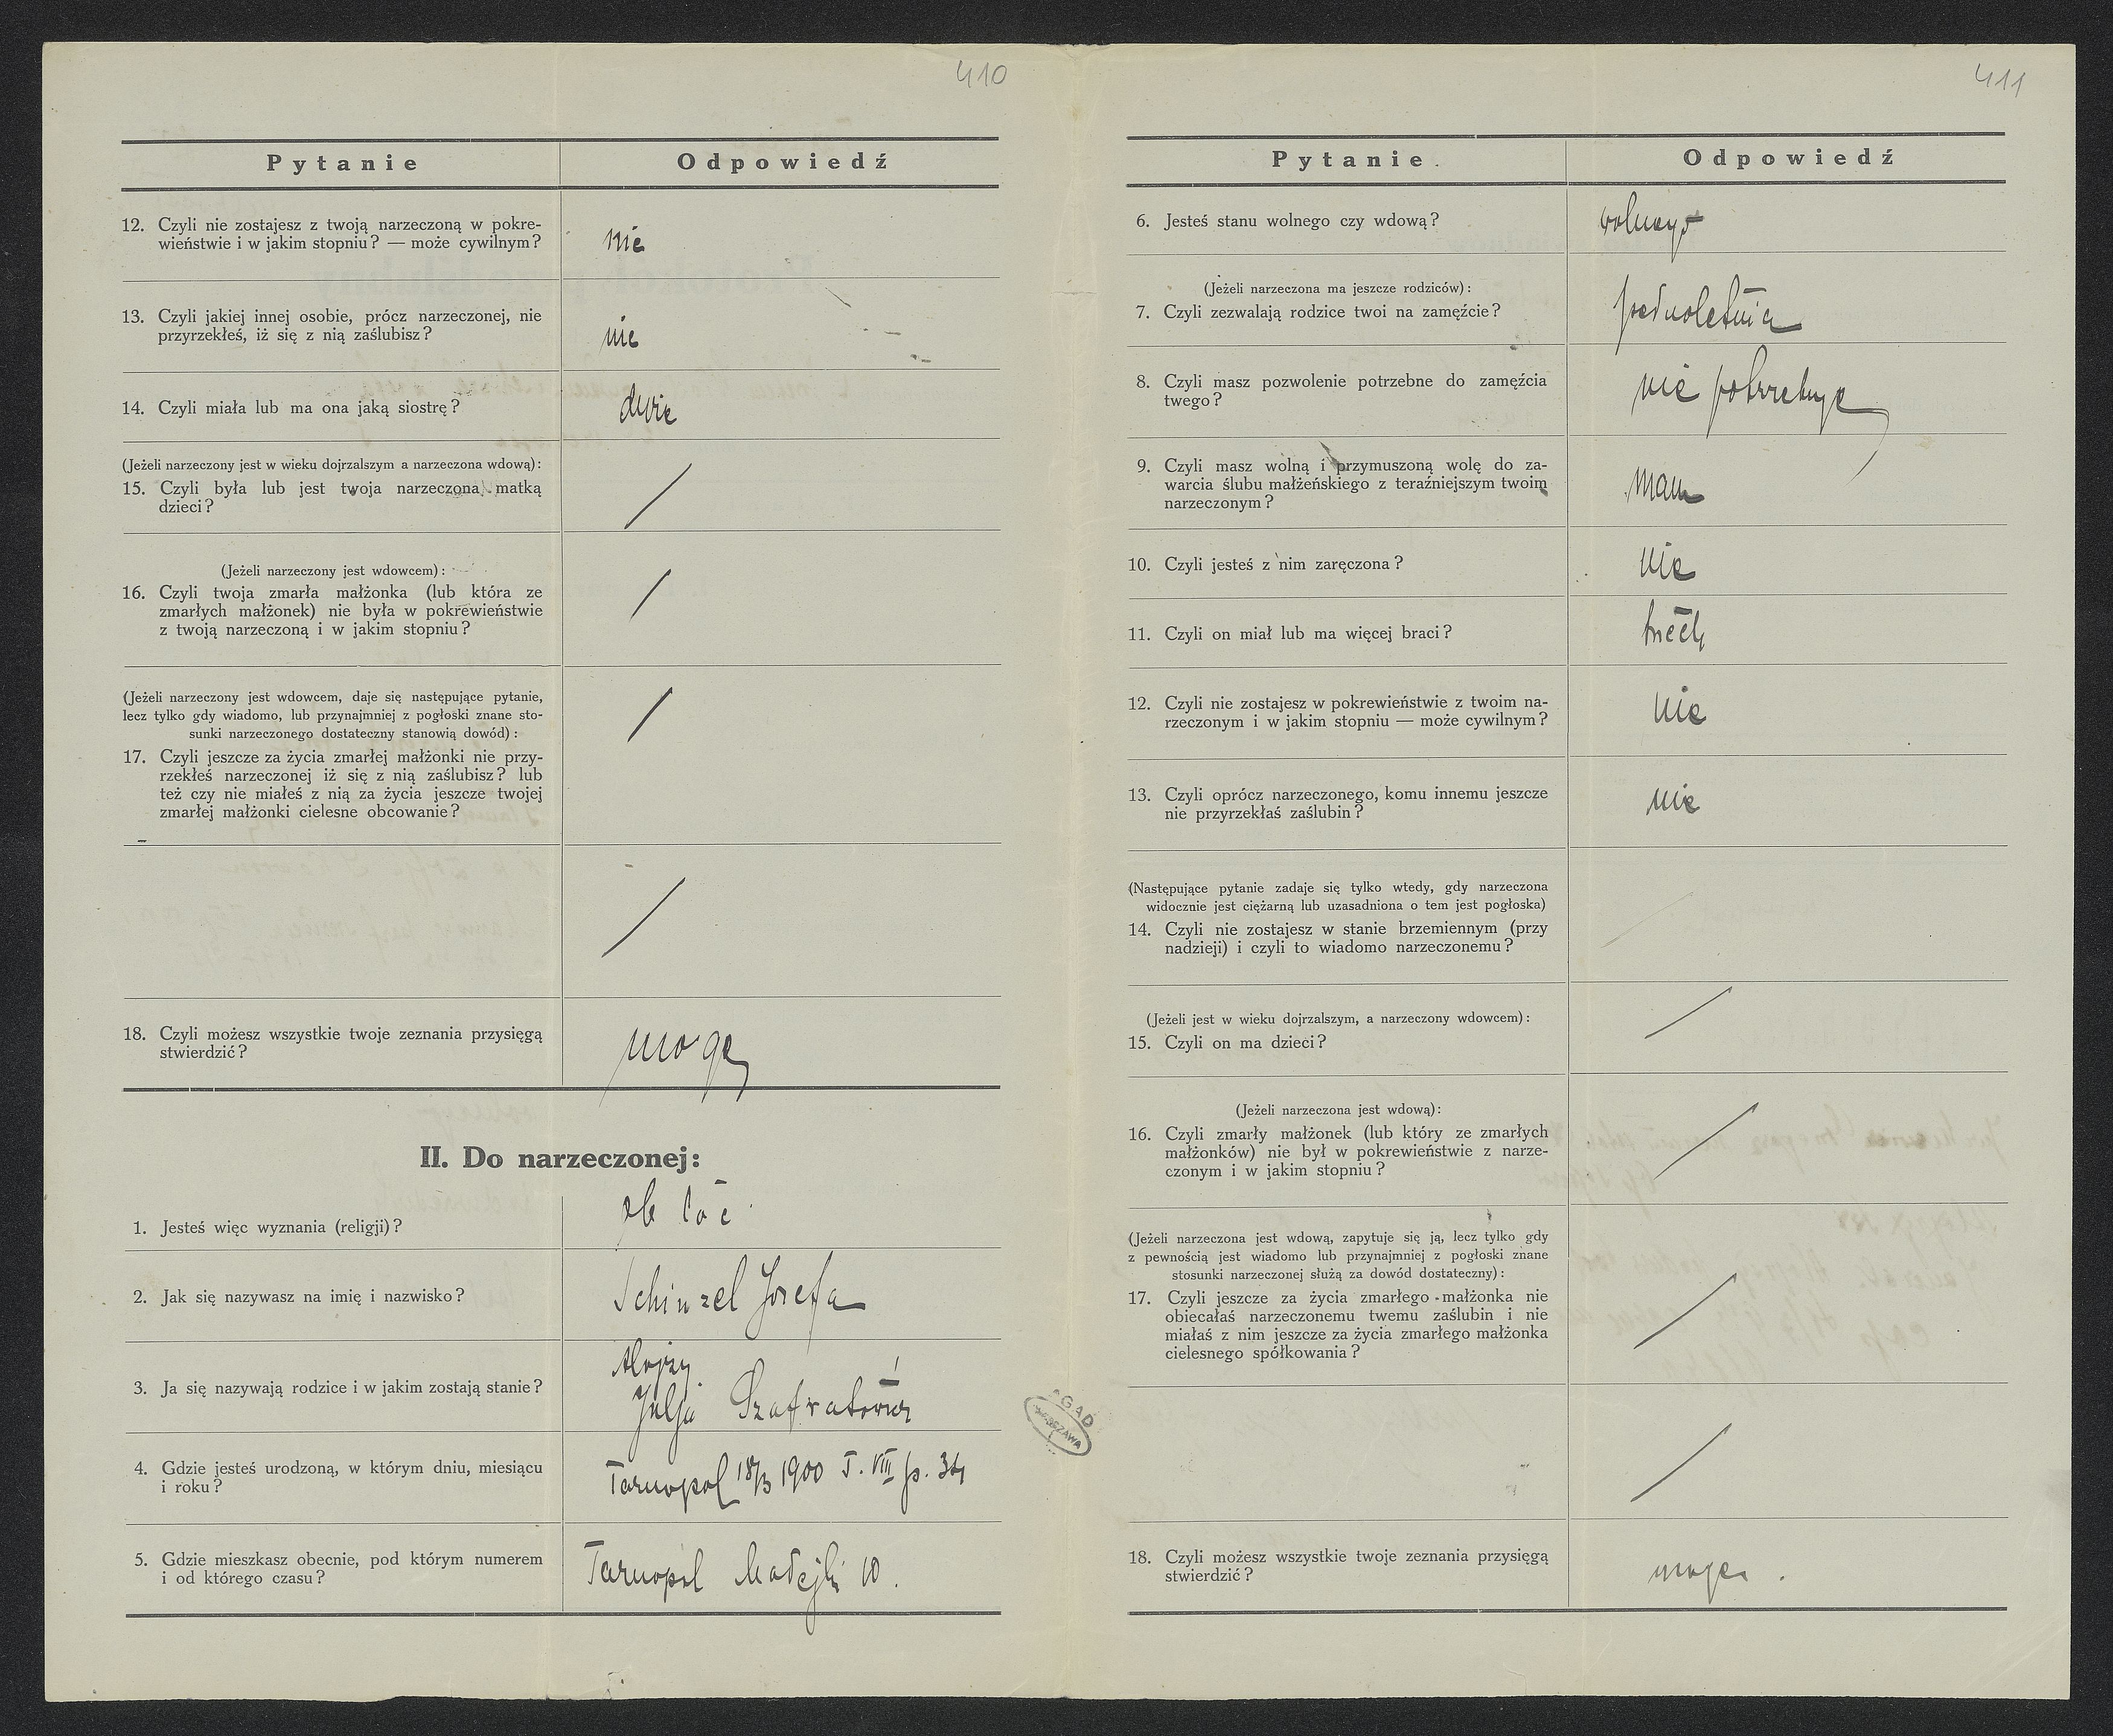 410
Pytanie
Odpowiedź
12. Czyli nie zostajesz z twoją narzeczoną w pokre-
wieństwie i w jakim stopniu? — może cywilnym?
nie
13. Czyli jakiej innej osobie, prócz narzeczonej, nie
przyrzekłeś, iż się z nią zaślubisz?
nie
14. Czyli miała lub ma ona jaką siostrę?
dwie
(Jeżeli narzeczony jest w wieku dojrzalszym a narzeczona wdową):
15. Czyli była lub jest twoja narzeczona matką
dzieci?
(Jeżeli narzeczony jest wdowcem):
16. Czyli twoja zmarła małżonka (lub która ze
zmarłych małżonek) nie była w pokrewieństwie
z twoją narzeczoną i w jakim stopniu?
(Jeżeli narzeczony jest wdowcem, daje się następujące pytanie,
lecz tylko gdy wiadomo, lub przynajmniej z pogłoski znane sto-
sunki narzeczonego dostateczny stanowią dowód):
17. Czyli jeszcze za życia zmarłej małżonki nie przy-
rzekłeś narzeczonej iż się z nią zaślubisz? lub
też czy nie miałeś z nią za życia jeszcze twojej
zmarłej małżonki cielesne obcowanie?
18. Czyli możesz wszystkie twoje zeznania przysięgą
stwierdzić?
mogę
II. Do narzeczonej:
1. Jesteś więc wyznania (religji)?
ob łać
2. Jak się nazywasz na imię i nazwisko?
Schinzel Józefa
3. Ja się nazywają rodzice i w jakim zostają stanie?
Alojzy
Julja
4. Gdzie jesteś urodzoną, w którym dniu, miesiącu
i roku?
Tarnopol 18/3 1900 T. VIII p. 34
5. Gdzie mieszkasz obecnie, pod którym numerem
i od którego czasu?
Tarnopol 10.
411
Pytanie
Odpowiedź
6. Jesteś stanu wolnego czy wdową?
wolnego
(Jeżeli narzeczona ma jeszcze rodziców):
7. Czyli zezwalają rodzice twoi na zamęźcie?
pełnoletnia
8. Czyli masz pozwolenie potrzebne do zamęźcia
twego?
nie potrzebuję
9. Czyli masz wolną i przymuszoną wolę do za-
warcia ślubu małżeńskiego z teraźniejszym twoim
narzeczonym?
mam
10. Czyli jesteś z nim zaręczona?
nie
11. Czyli on miał lub ma więcej braci?
trzech
12. Czyli nie zostajesz w pokrewieństwie z twoim na-
rzeczonym i w jakim stopniu — może cywilnym?
nie
13. Czyli oprócz narzeczonego, komu innemu jeszcze
nie przyrzekłaś zaślubin?
nie
(Następujące pytanie zadaje się tylko wtedy, gdy narzeczona
widocznie jest ciężarną lub uzasadniona o tem jest pogłoska)
14. Czyli nie zostajesz w stanie brzemiennym (przy
nadzieji) i czyli to wiadomo narzeczonemu?
(Jeżeli jest w wieku dojrzalszym, a narzeczony wdowcem):
15. Czyli on ma dzieci?
(Jeżeli narzeczona jest wdową):
16. Czyli zmarły małżonek (lub który ze zmarłych
małżonków) nie był w pokrewieństwie z narze-
czonym i w jakim stopniu?
(Jeżeli narzeczona jest wdową, zapytuje się ją, lecz tylko gdy
z pewnością jest wiadomo lub przynajmniej z pogłoski znane
stosunki narzeczonej służą za dowód dostateczny):
17. Czyli jeszcze za życia zmarłego małżonka nie
obiecałaś narzeczonemu twemu zaślubin i nie
miałaś z nim jeszcze za życia zmarłego małżonka
cielesnego spółkowania?
18. Czyli możesz wszystkie twoje zeznania przysięgą
stwierdzić?
mogę.
AGAD
WARSZAWA